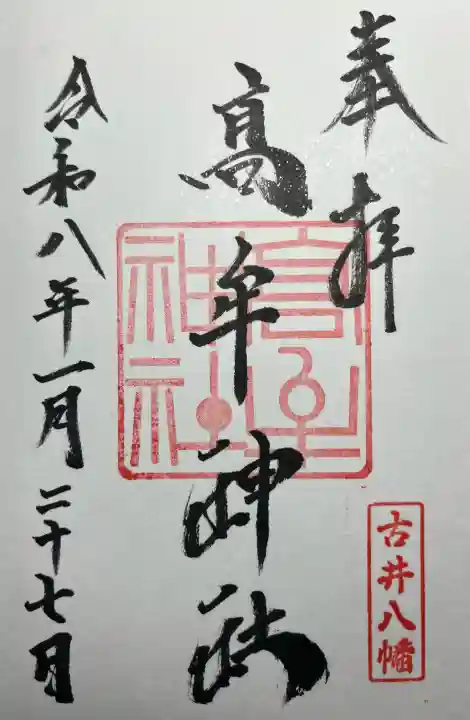 奉拝
高牟神社
高牟神社
古井八幡
令和八年一月二十七日